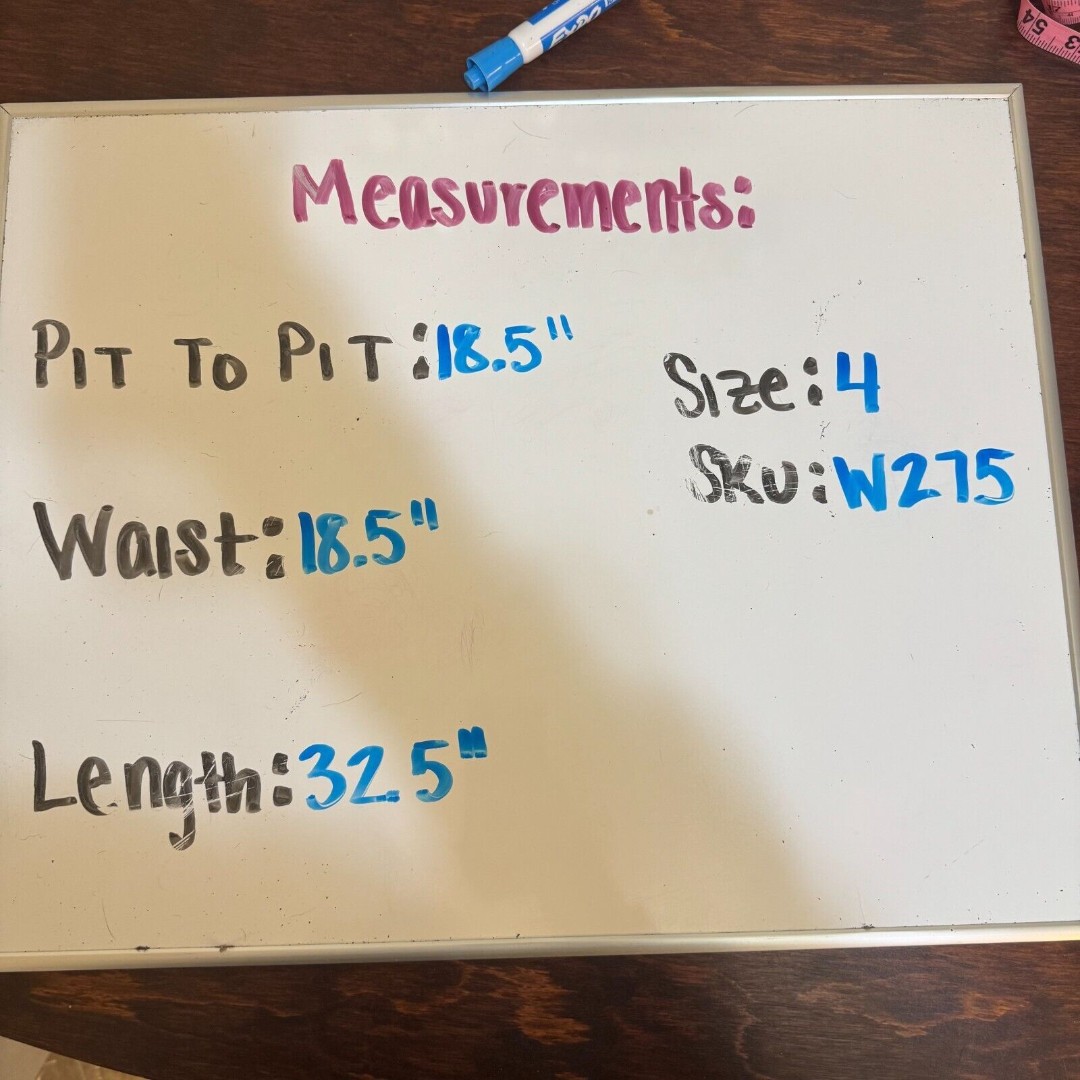 EXPO
54
53
Measurements:
PIT TO PIT:18.5"
Size:4
SKU:W275
Waist:18.5"
Length:32.5"